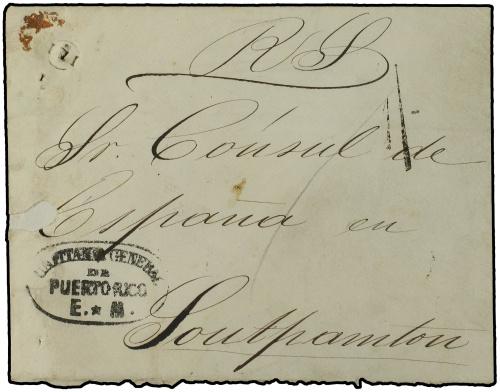 R S
Sr. Cónsul de
España en
Soutpamton
CAPITANIA GENERAL
DE
PUERTO RICO
E. * M.